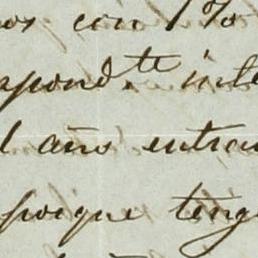 os con 1%
spond.te inte
l año entra
porque teng